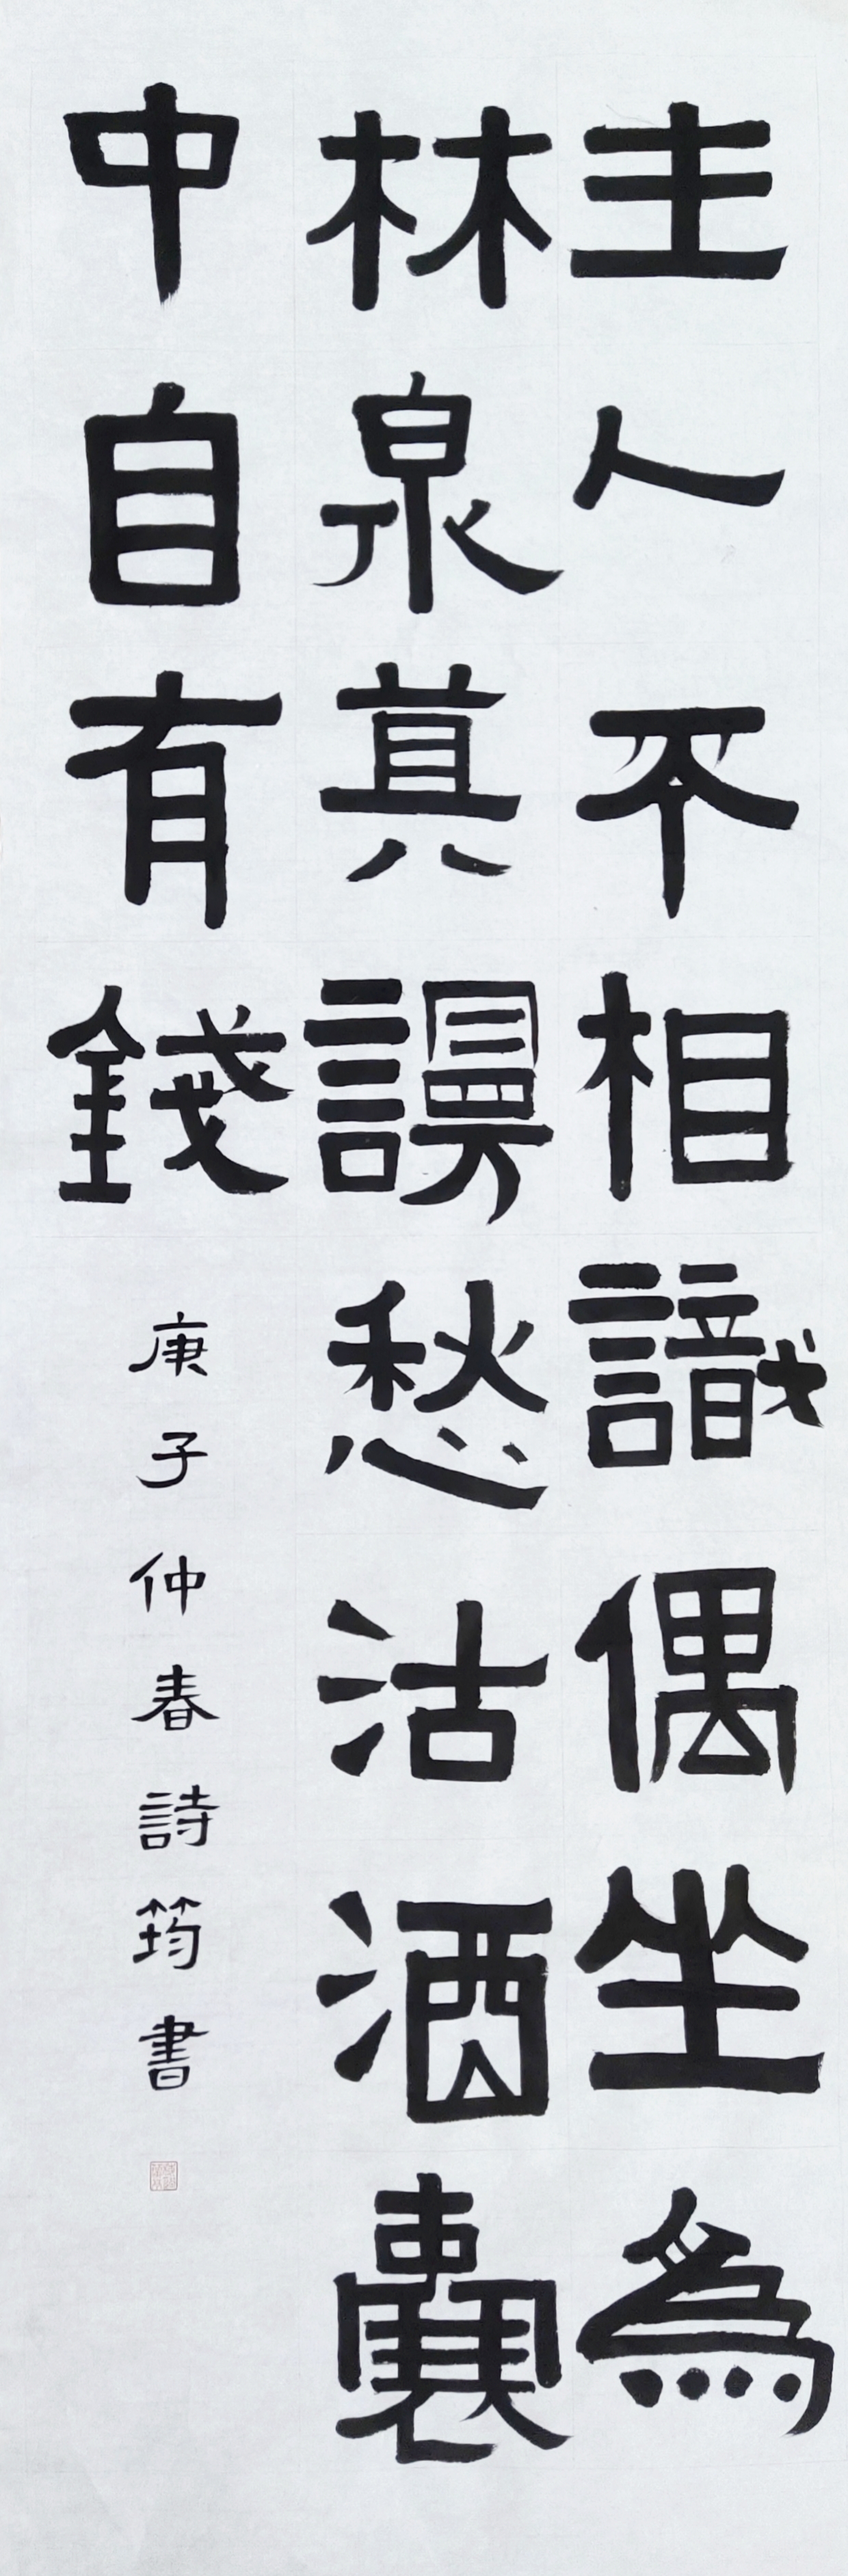 主人不相識偶坐為
林泉莫謾愁沽酒囊
中自有錢
庚子仲春詩筠書